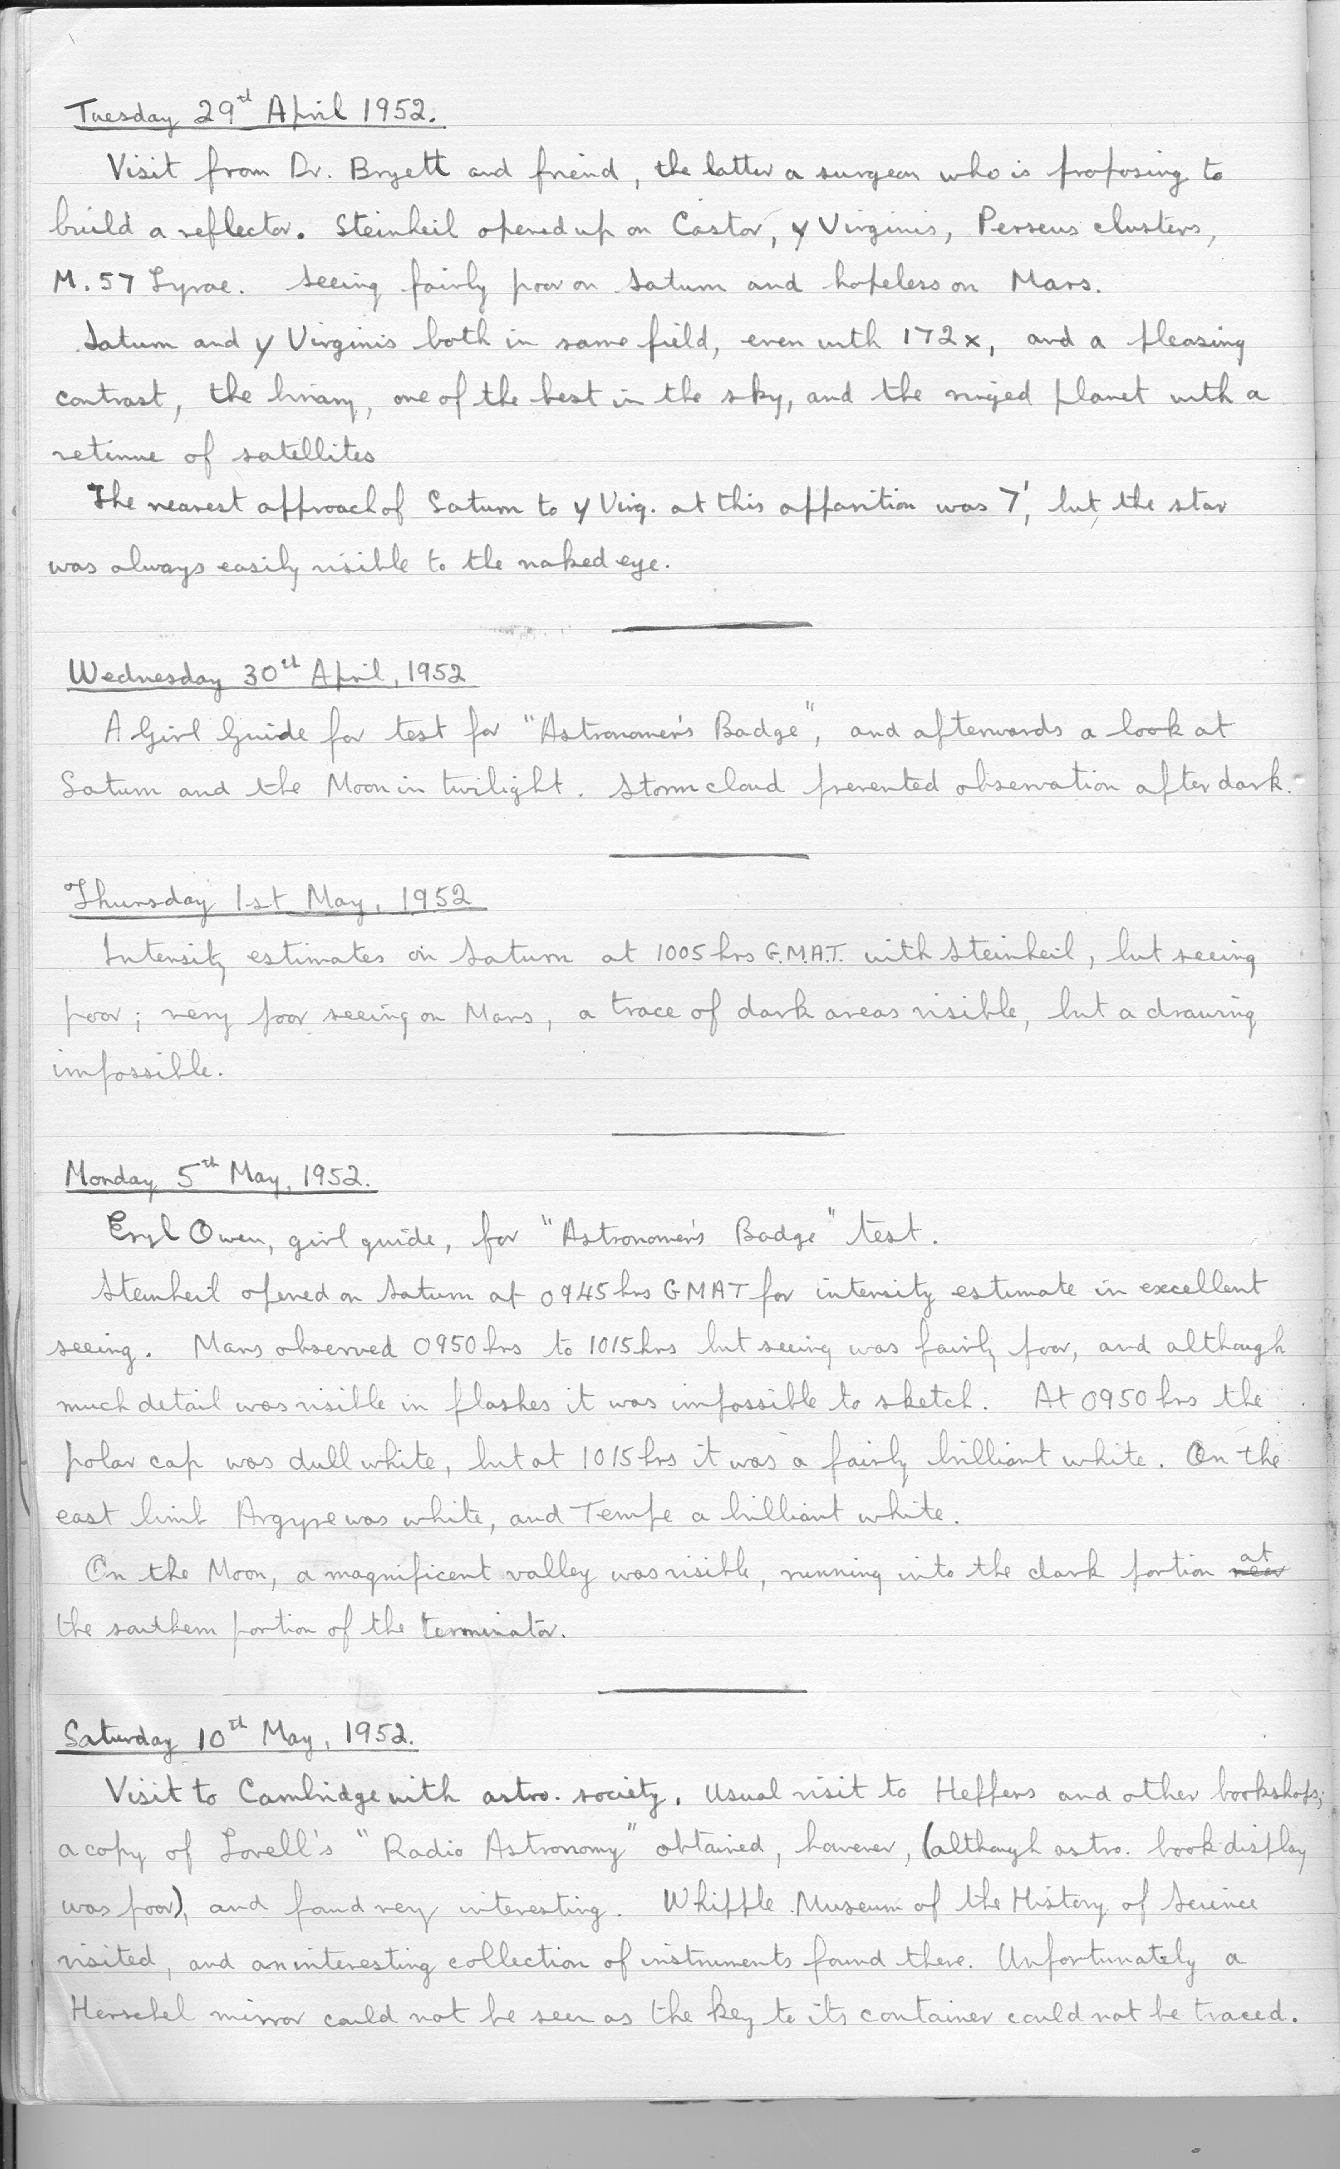 Tuesday 29th April 1952.
Visit from Dr. Bryett and friend, the latter a surgeon who is proposing to
build a reflector. Steinheil opened up on Castor, γ Virginis, Perseus clusters,
M.57 Lyrae. Seeing fairly poor on Saturn and hopeless on Mars.
Saturn and γ Virginis both in same field, even with 172x, and a pleasing
contrast, the binary, one of the best in the sky, and the ringed planet with a
retinue of satellites
The nearest approach of Saturn to γ Virg. at this apparition was 7', but the star
was always easily visible to the naked eye.
Wednesday 30th April, 1952
A Girl Guide for test for "Astronomer's Badge", and afterwards a look at
Saturn and the Moon in twilight. Storm cloud prevented observation after dark.
Thursday 1st May, 1952
Intensity estimates on Saturn at 1005 hrs G.M.A.T. with Steinheil, but seeing
poor; very poor seeing on Mars, a trace of dark areas visible, but a drawing
impossible.
Monday 5th May, 1952.
Eryl Owen, girl guide, for "Astronomer's Badge" test.
Steinheil opened on Saturn at 0945 hrs GMAT for intensity estimate in excellent
seeing. Mars observed 0950 hrs to 1015 hrs but seeing was fairly poor, and although
much detail was visible in flashes it was impossible to sketch. At 0950 hrs the
polar cap was dull white, but at 1015 hrs it was a fairly brilliant white. On the
east limb Argyre was white, and Tempe a brilliant white.
On the Moon, a magnificent valley was visible, running into the dark portion near at
the southern portion of the terminator.
Saturday 10th May, 1952.
Visit to Cambridge with astro. society. Usual visit to Heffers and other bookshops;
a copy of Lovell's "Radio Astronomy" obtained, however, (although astro. book display
was poor), and found very interesting. Whipple Museum of the History of Science
visited, and an interesting collection of instruments found there. Unfortunately a
Herschel mirror could not be seen as the key to its container could not be traced.